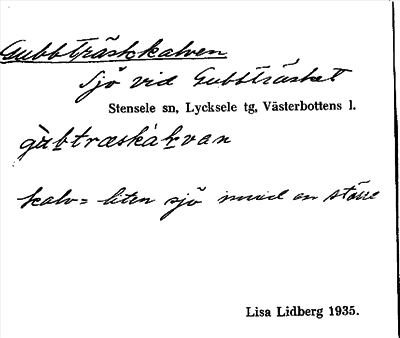 Gubbträskkalven
Sjö vid Gubbträsket
Stensele sn, Lycksele tg, Västerbottens l.
gùbtræskàḷvan
kalv = liten sjö invid en större
Lisa Lidberg 1935.